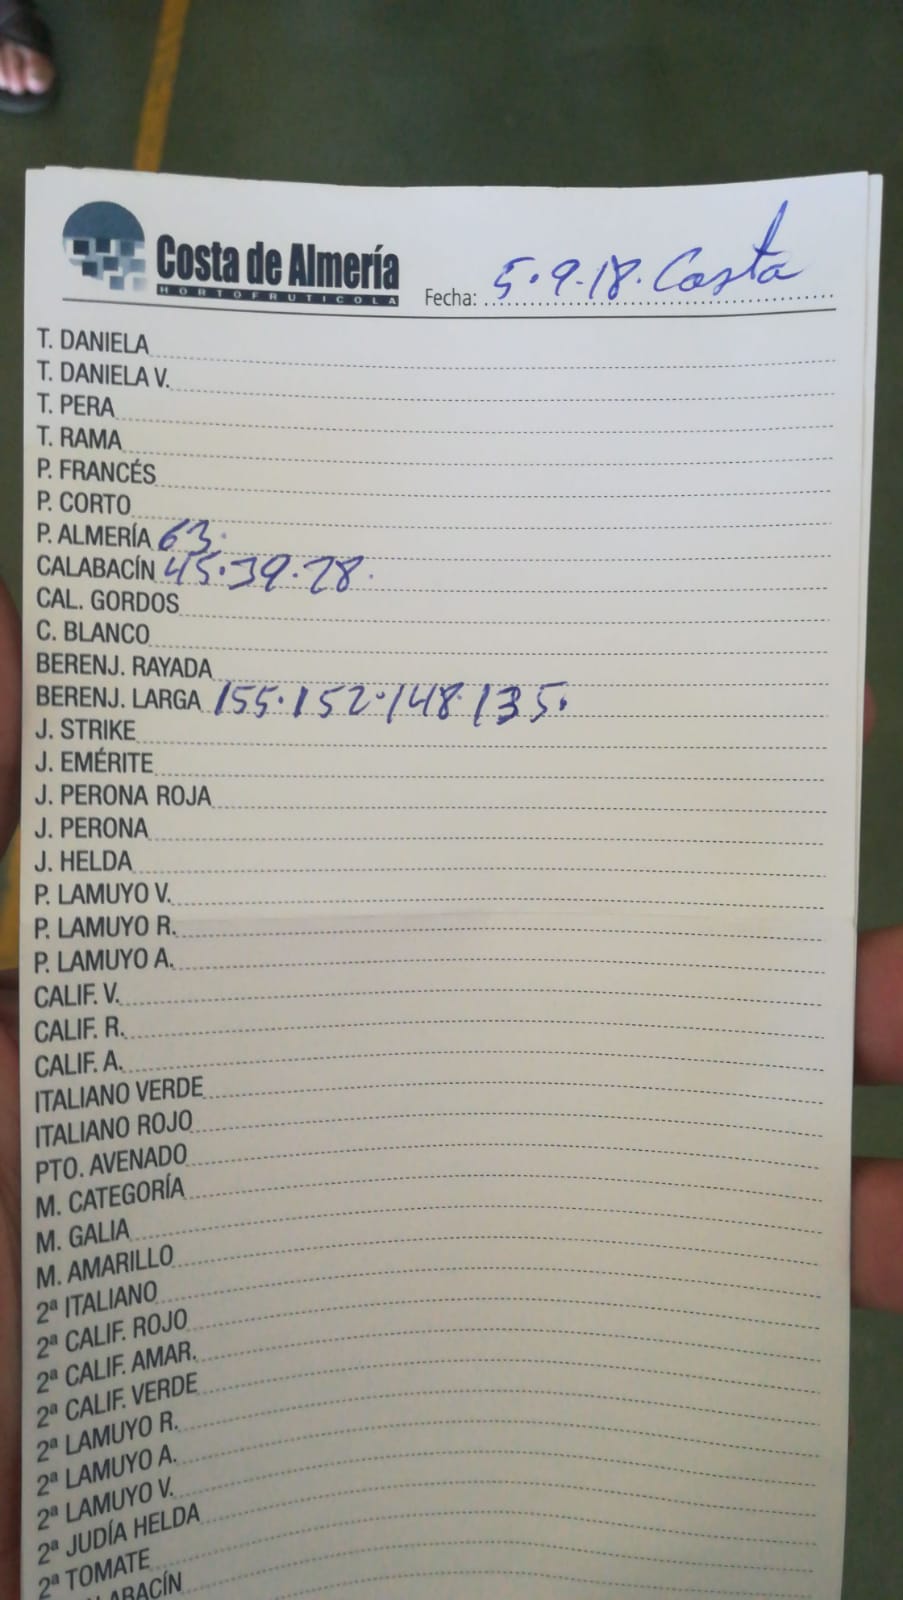 Costa de Almería
HORTOFRUTICOLA
Fecha: 5.9.18. Costa
T. DANIELA
T. DANIELA V.
T. PERA
T. RAMA
P. FRANCÉS
P. CORTO
P. ALMERÍA 63.
CALABACÍN 45.39.28.
CAL. GORDOS
C. BLANCO
BERENJ. RAYADA
BERENJ. LARGA 155.152.148.135.
J. STRIKE
J. EMÉRITE
J. PERONA ROJA
J. PERONA
J. HELDA
P. LAMUYO V.
P. LAMUYO R.
P. LAMUYO A.
CALIF. V.
CALIF. R.
CALIF. A.
ITALIANO VERDE
ITALIANO ROJO
PTO. AVENADO
M. CATEGORÍA
M. GALIA
M. AMARILLO
2ª ITALIANO
2ª CALIF. ROJO
2ª CALIF. AMAR.
2ª CALIF. VERDE
2ª LAMUYO R.
2ª LAMUYO A.
2ª LAMUYO V.
2ª JUDÍA HELDA
2ª TOMATE